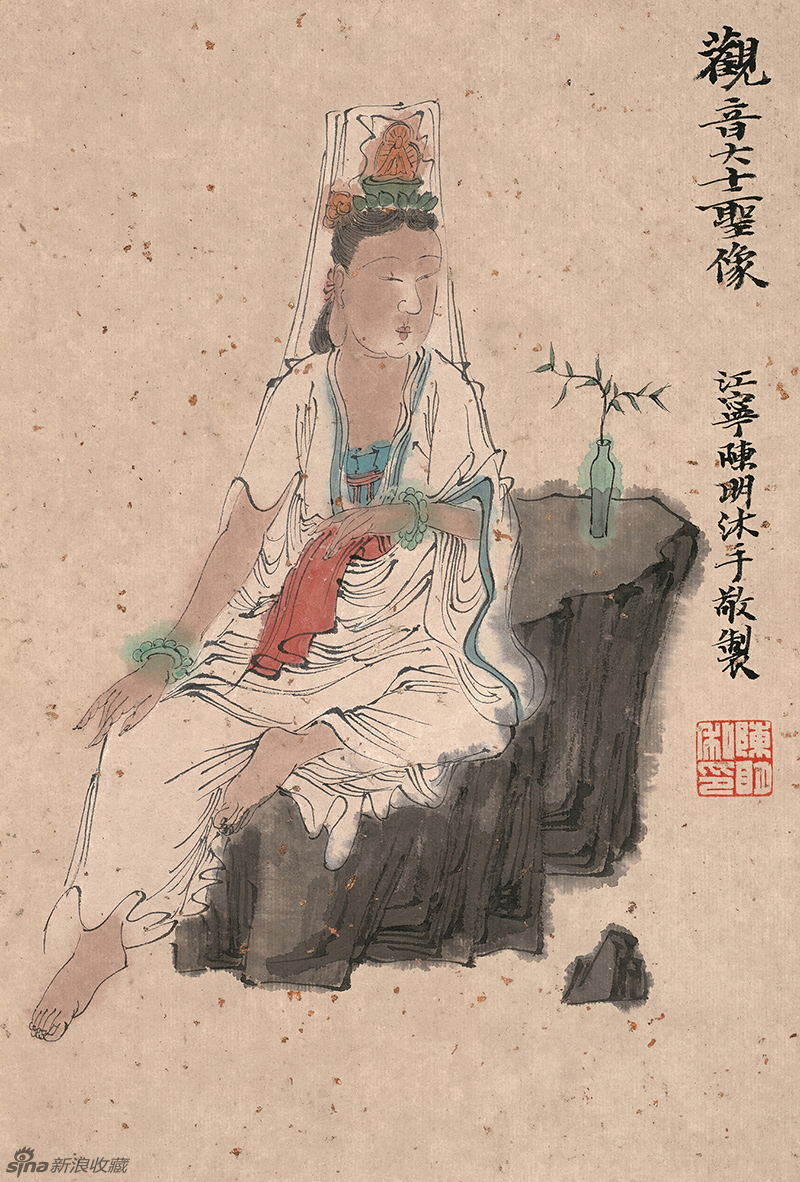 觀音大士聖像
江寧陳明沐手敬製
sina新浪收藏